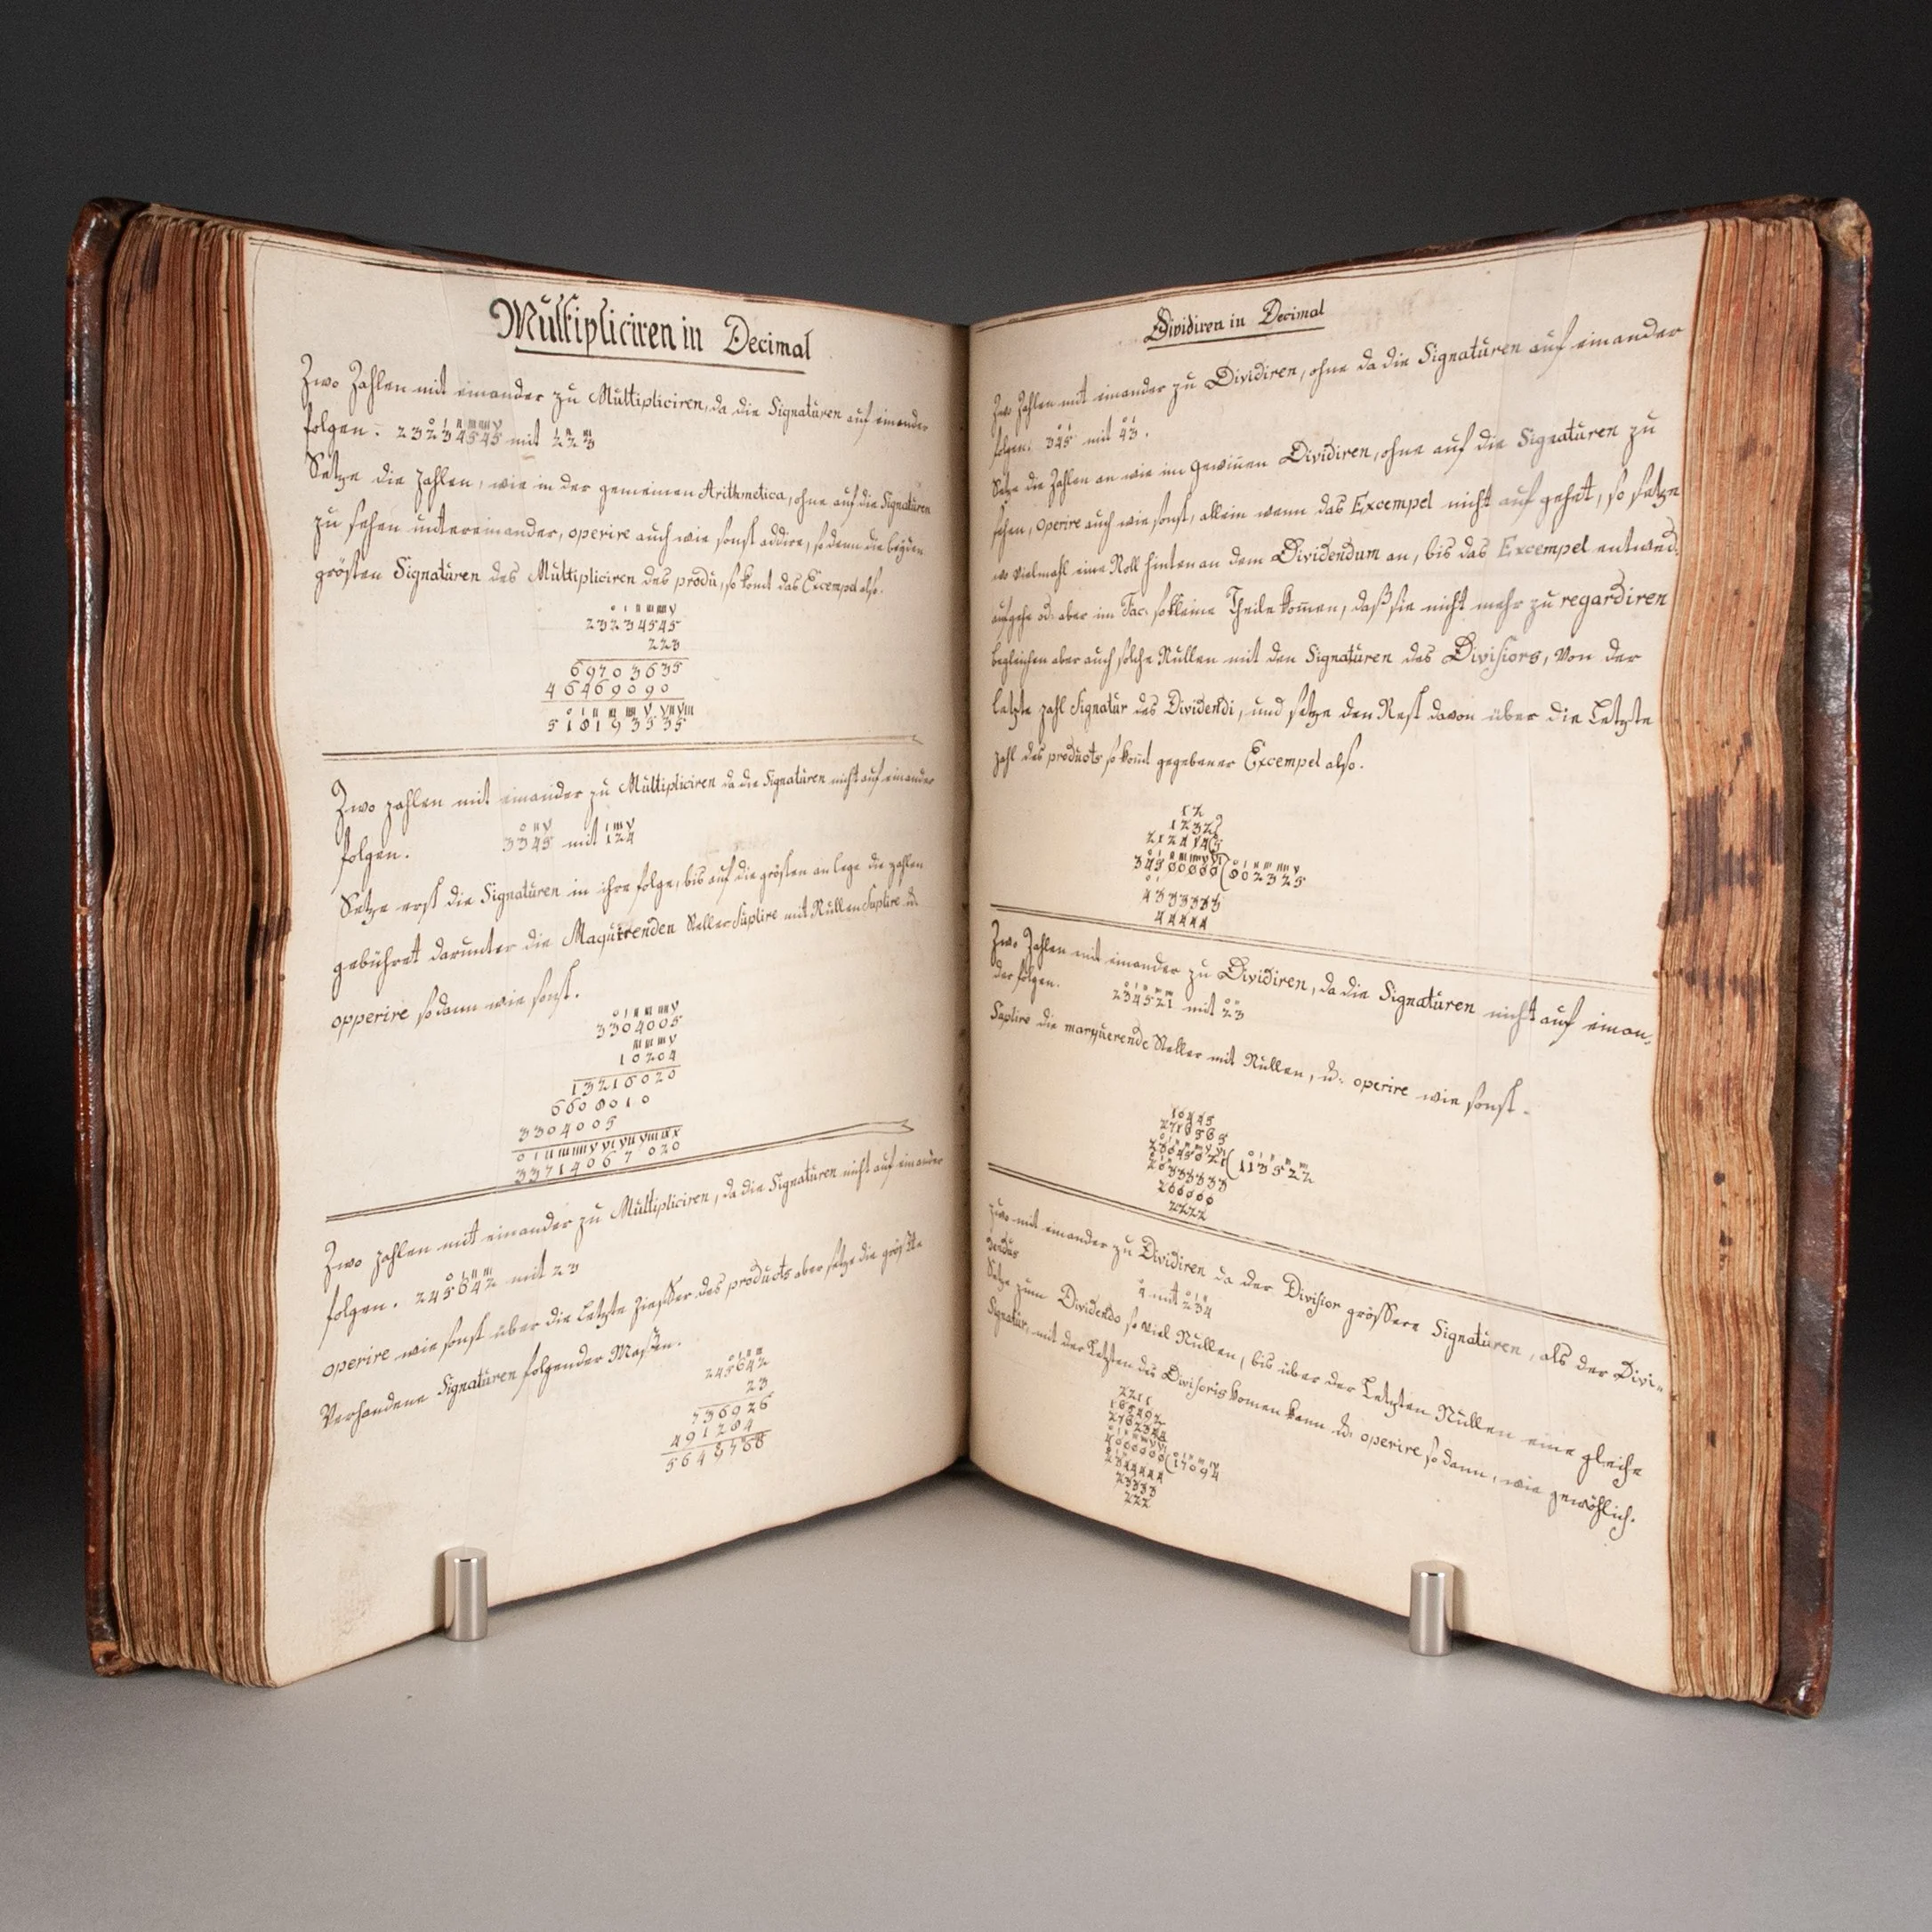 Multipliciren in Decimal
Zwo Zahlen mit einander zu Multipliciren, da die Signaturen auf einander
folgen. 23234545 mit 223
Setze die Zahlen, wie in der gemeinen Arithmetica, ohne auf die Signaturen
zu sehen untereinander, operire auch wie sonst addire, so dann die beyden
grösten Signaturen des Multipliciren des produ, so komt das Excempel also.
o I II III IIII V
23234545
223
69703635
46469090
518193535
Zwo zahlen mit einander zu Multipliciren da die Signaturen nicht auf einander
folgen. 3345 mit 124
Setze erst die Signaturen in ihre folge, bis auf die grösten an lege die zahlen
gebühret darunter die Maquirenden Steller Suplire mit Nullen
opperire so dann wie sonst.
3304005
10204
13216020
6608010
3304005
33714067020
Zwo zahlen mit einander zu Multipliciren, da die Signaturen nicht auf einander
folgen. 245642 mit 23
operire wie sonst über die Letzte Zieffer des products aber setze die gröste
Verhandene Signaturen folgender Maßen.
245642
23
736926
491284
5648788
Dividiren in Decimal
Zwo Zahlen mit einander zu Dividiren, ohne da die Signaturen auf einander
folgen. 345 mit 43.
Setze die Zahlen an wie im Dividiren, ohne auf die Signaturen zu
sehen, operire auch wie sonst, allein wenn das Excempel nicht auf gehet, so setze
so vielmahl eine Noll hinten an dem Dividendum an, bis das Excempel entwed.
aufgehe od. aber im Fac. so kleine Theile komen, daß sie nicht mehr zu regardiren
begleichen aber auch solche Nullen mit den Signaturen des Divisors, von der
Letzte zahl Signatur des Dividendi, und setze den Rest davon über die Letzte
zahl des products so komt gegebener Excempel also.
12
1232
34500000(802325
4333333
44444
Zwo Zahlen mit einander zu Dividiren, da die Signaturen nicht auf einan-
der folgen. 234521 mit 23
Suplire die marquerende Steller mit Nullen, u: operire wie sonst.
(113522
2222
zwo mit einander zu Dividiren da der Divisior grössere Signaturen, als der Divi-
dendus 4 mit 234
Setze zum Dividendo so viel Nullen, bis über der Letzten Nullen eine gleiche
Signatur, mit der Letzten des Divisoris komen kann u: operire so dann, wie gewöhlich.
2211
400000(17094
2344444
23333
222